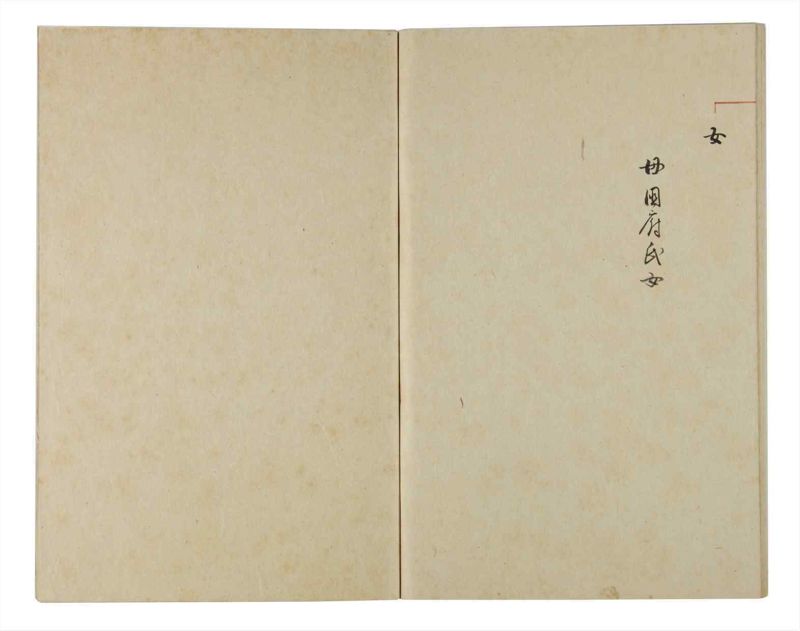 女
母国府氏女